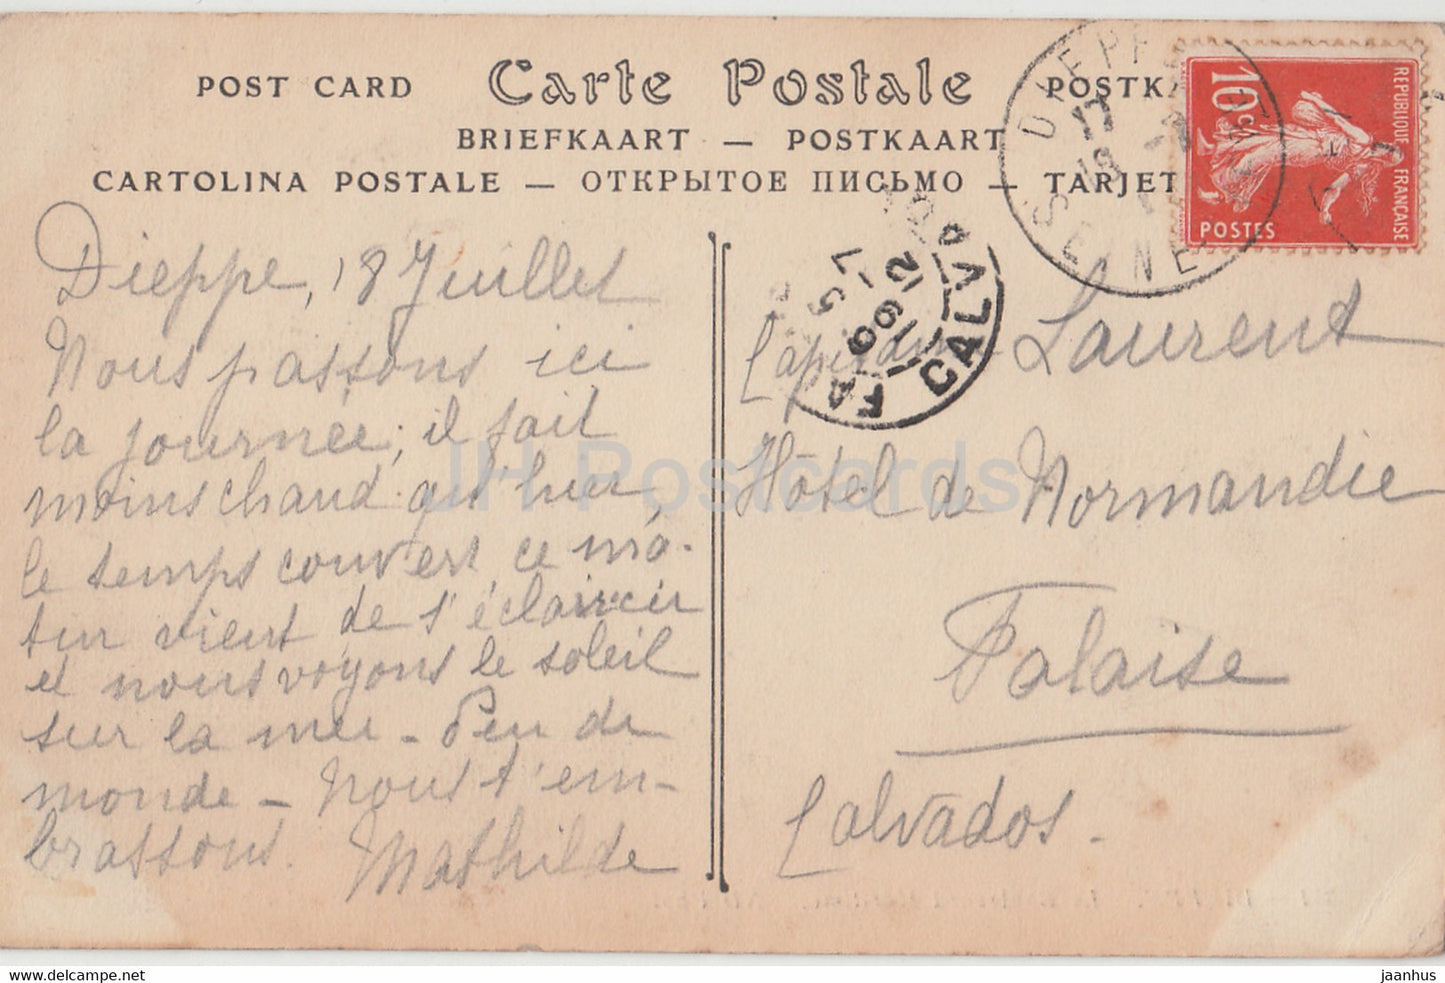 POST CARD Carte Postale POSTK
BRIEFKAART — POSTKAART
CARTOLINA POSTALE — ОТКРЫТОЕ ПИСЬМО — TARJET
10c
REPUBLIQUE FRANÇAISE
POSTES
DIEPPE
17
SEINE
CALV
FA
Dieppe, 18 Juillet
Nous passons ici
la journée; il fait
moins chaud qu'hier,
le temps couvert ce ma-
tin vient de s'éclaircir
et nous voyons le soleil
sur la mer - Peu de
monde - Nous t'em-
brassons. Mathilde
Capitaine Laurent
Hôtel de Normandie
Falaise
Calvados.
JH Postcards
jaanhus